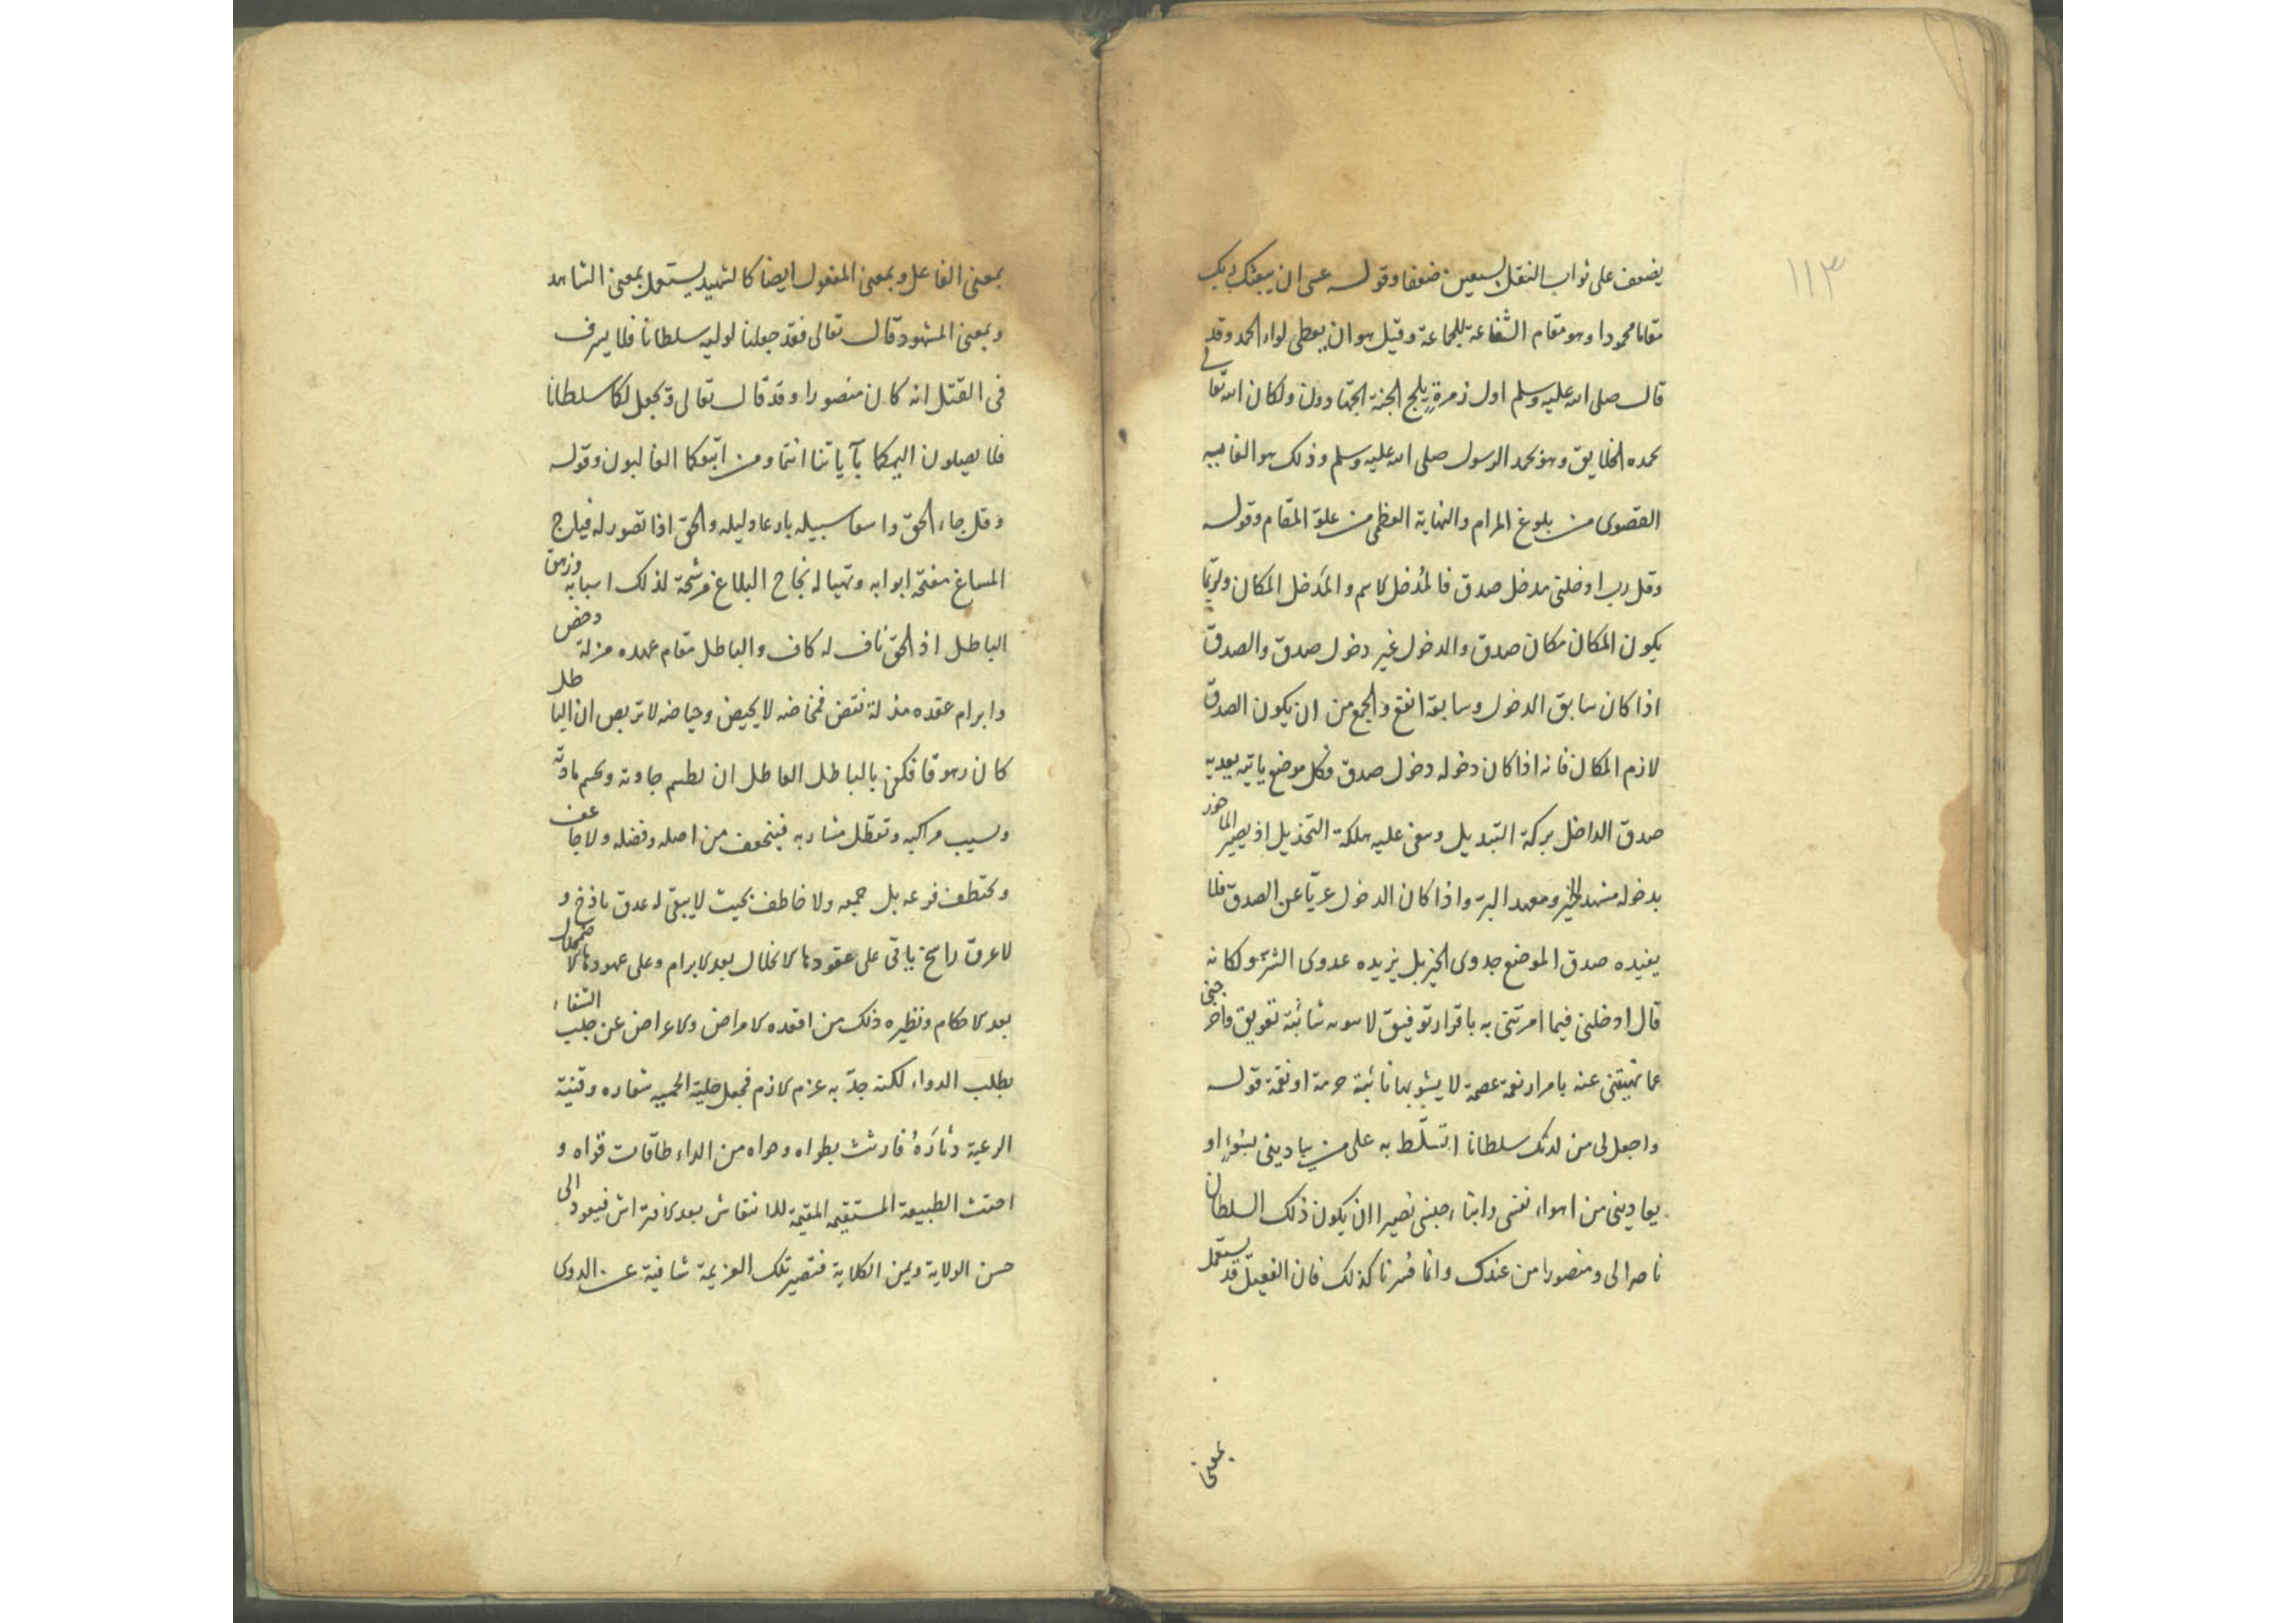 ١١٣
يضعف على ثواب النقل بسبعين ضعفا وقوله عسى ان يبعثك ربك
مقاما محمودا وهو مقام الشفاعة للجماعة وقيل هو ان يعطى لواء الحمد وقد
قال صلى الله عليه وسلم اول زمرة يلج الجنة الحمّادون ولكان الله تعالى
يحمده الخلايق وهو يحمد الرسول صلى الله عليه وسلم وذلك هو الغاية
القصوى من بلوغ المرام والنهاية العظمى من علوّ المقام وقوله
وقل رب ادخلنى مدخل صدق فالمُدخل لاسم والمَدخل المكان ولربّما
يكون المكان مكان صدق والدخول غير دخول صدق والصدق
اذا كان سابق الدخول وسابقه انفع والجمع من ان يكون الصدق
لازم المكان فانه اذا كان دخوله دخول صدق فكل موضع ياتيه يعديه
صدق الداخل بركة التبديل وبقى عليه هلكة التخذيل اذ يصير الماخور
بدخوله مشهد الخير ومعهد البرّ واذا كان الدخول عريّا عن الصدق فلا
يفيده صدق الموضع جدوى الخير بل يزيده عدوى الشرّ ولكانه
قال ادخلنى فيما امرتنى به باقرار توفيق لا شائبة تعويق واخرجنى
عما نهيتنى عنه بامرار نعمة عصمة لا يشوبها نائبة حرمة او نقمة قوله
واجعل لى من لدنك سلطانا اتسلّط به على من يبادينى بسوء او
يعادينى من اهواء نفسى وابناء جنسى نصيرا ان يكون ذلك السلطان
ناصرا لى ومنصورا من عندك وانما فسرنا كذلك فان الفعيل قد يستعمل
بمعنى
بمعنى الفاعل وبمعنى المفعول ايضا كالشهيد يستعمل بمعنى الشاهد
وبمعنى المشهود قال تعالى فقد جعلنا لوليه سلطانا فلا يسرف
فى القتل انه كان منصورا وقد قال تعالى ونجعل لكما سلطانا
فلا يصلون اليكما بآياتنا انتما ومن اتبعكما الغالبون وقوله
وقل جاء الحق واسعا سبيله بارعا دليله والحق اذا تصور له فيلج
المساغ مفتحة ابوابه وتهيا له نجاح البلاغ مرشحة لذلك اسبابه وزهق
الباطل اذ الحق ناف له كاف والباطل مقام عهده مزلة دحض
وابرام عقده مذلة نقض فمخاضه لا يحيض وحياضه لا تربص ان الباطل
كان زهوقا فكفى بالباطل العاطل ان يطسم جادته ويحسم مادته
وتسيب مراكبه وتعطّل مشاربه فينجعف من اصله وفضله ولا جاعف
ويختطف فرعه بل جمعه ولا خاطف بحيث لا يبقى له عذق باذخ و
لا عرق راسخ ياتى على عقودها لانحلال بعد لابرام وعلى عهودها لاضمحلال
بعد لاحكام ونظيره ذلك من اقعده لامراض ولاعراض عن جلب الشفاء
بطلب الدواء لكنه جدّ به عزم لازم فجعل حلية الحمية شعاره وقنية
الرعية دثاره فارتث بطواه وهواه من الداء طاقات قواه و
احتث الطبيعة المستقيمة المقيمة للانتقاش بعد لافتراش فيعود الى
حسن الولاية ويمن الكلاية فتصير تلك العزيمة شافية عن الدوى